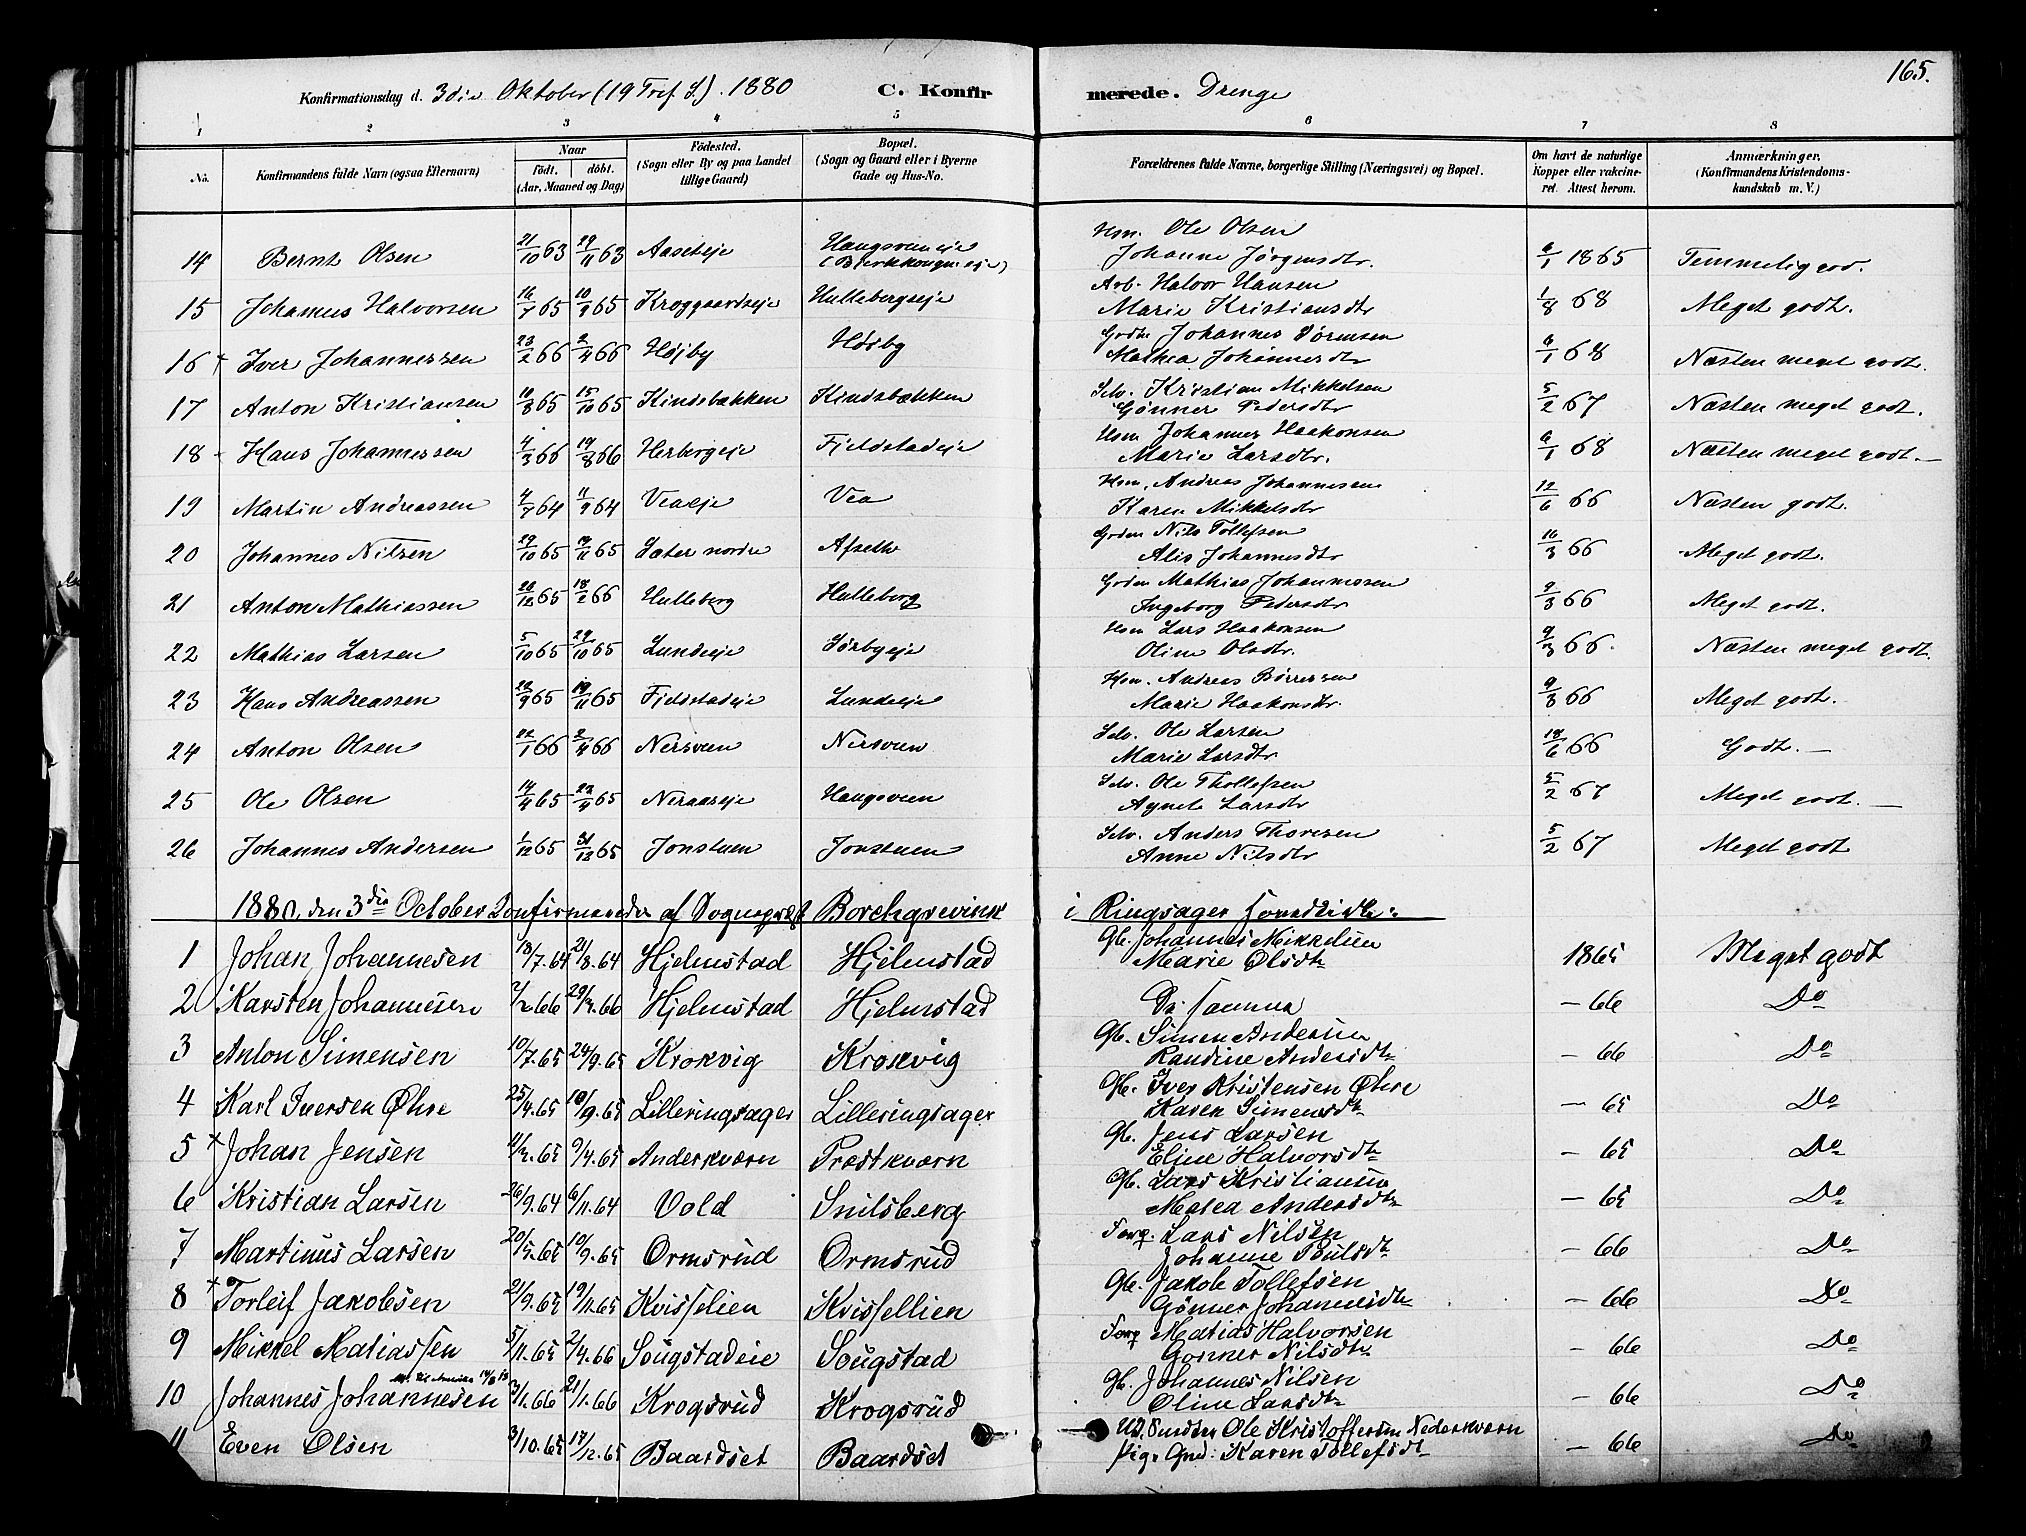 165.
Konfirmationsdag d. 3die Oktober (19 Tref S.). 1880 C. Konfirmerede. Drenge
1 2 3 4 5 6 7 8
No. Konfirmandens fulde Navn (ogsaa Efternavn) Naar født. døbt. (Aar, Maaned og Dag) Fødested. (Sogn eller By og paa Landet tillige Gaard) Bopæl. (Sogn og Gaard eller i Byerne Gade og Hus-No. Forældrenes fulde Navne, borgerlige Stilling (Næringsvei) og Bopæl. Om havt de naturlige Kopper eller vakcineret. Attest herom. Anmærkninger. (Konfirmandens Kristendomskundskab m. V.)
14 Bernt Olsen 21/10 63 29/11 63 Aaseteje Haugsveneje Hsm. Ole Olsen Johanne Jørgensdtr. 6/1 1865 Temmelig god.
15 Johannes Halvorsen 16/7 65 10/9 65 Kroggaardseje Hullebergseje Arb. Halvor Hansen Marie Kristiansdtr 1/8 68 Meget godt.
16 + Iver Johannessen 23/2 66 2/4 66 Højby Højby Gaardm. Johannes Sørensen Mathea Johannesdtr 6/1 68 Næsten meget godt.
17 Anton Kristiansen 10/8 65 15/10 65 Kindsbækken Kindsbækken Selv. Kristian Mikkelsen Gønner Pedersdtr 5/2 67 Næsten meget godt.
18 Hans Johannessen 4/3 66 19/8 66 Herbergeje Fjeldstadeje Hsm Johannes Haakonsen Marie Larsdtr. 6/1 68 Næsten meget godt.
19 Martin Andreassen 4/7 64 11/9 64 Veaeje Vea Hsm. Andreas Johannesen Karen Mikkelsdtr 12/6 66 Næsten godt.
20 Johannes Nilsen 29/10 65 19/11 65 Sæter nordre Afseth Grdm Nils Tollefsen Alis Johannesdtr 16/3 66 Meget godt.
21 Anton Mathiassen 26/12 65 18/2 66 Hulleberg Hulleberg Grdm Mathias Johannessen Ingeborg Pedersdtr 9/3 66 Meget godt.
22 Mathias Larsen 5/10 65 29/10 65 Lundseje Sørbyeje Hsm Lars Haakonsen Oline Olsdtr. 9/3 66. Næsten meget godt.
23 Hans Andreassen 22/9 65 19/11 65 Fjeldstadeje Lundeje Hsm. Andreas Børresen Marie Haakonsdtr. 9/3 66 Meget godt.
24 Anton Olsen 22/1 66 2/4 66 Nersveen Nersveen Selv. Ole Larsen Marie Larsdtr 18/6 66 Godt.
25 Ole Olsen 14/4 65 Neraaseje Haugsveen Selv. Ole Thollefsen Agnete Larsdtr 5/2 67 Meget godt.
26 Johannes Andersen 1/12 65 31/12 65 Jonstuen Jonstuen Selv. Anders Thoresen Anne Nilsdtr 5/2 67 Meget godt
1880, den 3die October Konfirmereder af Sognepræst Borchgrevink i Ringsager
1 Johan Johannesen 18/7.64 21/8.64 Hjelmstad Hjelmstad Gb. Johannes Mikkelsen Marie Olsdtr 1865 Meget godt
2 Karsten Johannesen 7/2 66 Hjelmstad Hjelmstad De samme – 66 Do
3 Anton Simensen 10/7.65 24/9.65 Krokvig Krokvig Gb. Simen Andersen Randine Andersdtr – 66 Do
4 Karl Iversen Øhre 25/4.65 10/9.65 Lilleringsager Lilleringsager Gb. Iver Kristensen Øhre Karen Simensdtr – 65 Do
5 + Johan Jensen 9/4.65 Anderkværn Prestkværn Gb. Jens Larsen Eline Halvorsdtr – 65 Do
6 Kristian Larsen 26/9.64 6/11.64 Vold Snilsberg Gb. Lars Kristiansen Matea Andersdtr – 65 Do
7 Martinus Larsen 10/9.65 Ormsrud Ormsrud Forp. Lars Nilsen Johanne Poulsdtr – 66 Do
8 + Torleif Jakobsen 21/9.65 19/11.65 Kvisselien Kvissellien Gb. Jakob Tollefsen Gønner Johannesdtr – 66 Do
9 Mikkel Matiassen 5/11.65 2/4.66 Sougstadeie Sougstad Forp Matias Halvorsen Gonner Nilsdtr – 66 Do
10 Johannes Johannesen 3/1.66 21/1.66 Krogsrud Krogsrud Gb. Johannes Nilsen Oline Larsdtr – 66 Do
11 Even Olsen 3/10.65 17/12.65 Baardset Baardset Ole Kristoffersen Nederkværn Pige Gud: Karen Tollefsdtr – 66 Do